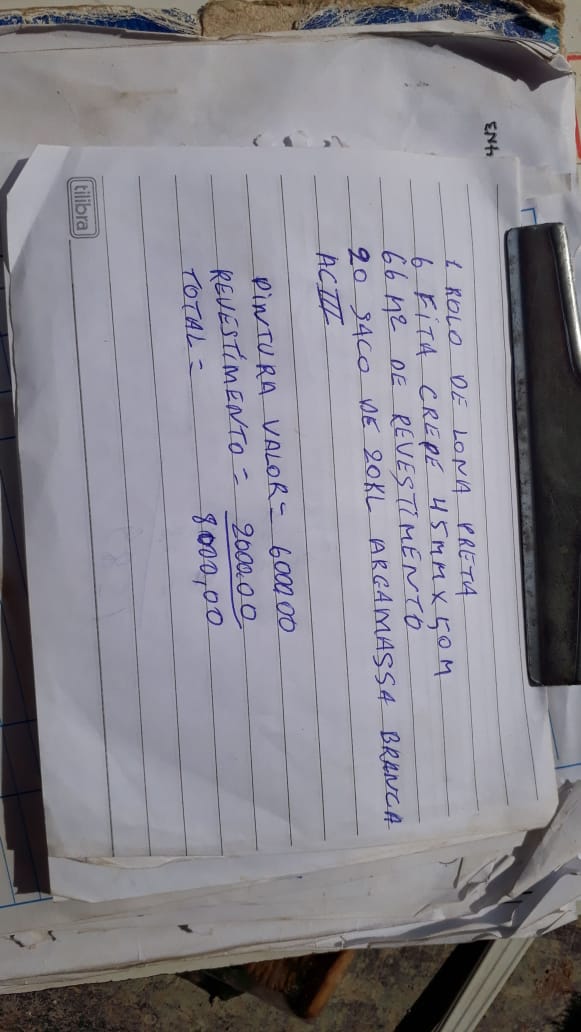 1 ROLO DE LONA PRETA
6 FITA CREPE 45MM X 50M
66 M2 DE REVESTIMENTO
20 SACO DE 20KL ARGAMASSA BRANCA
ACIII
PINTURA VALOR = 6000,00
REVESTIMENTO = 2000,00
TOTAL = 8000,00
tilibra